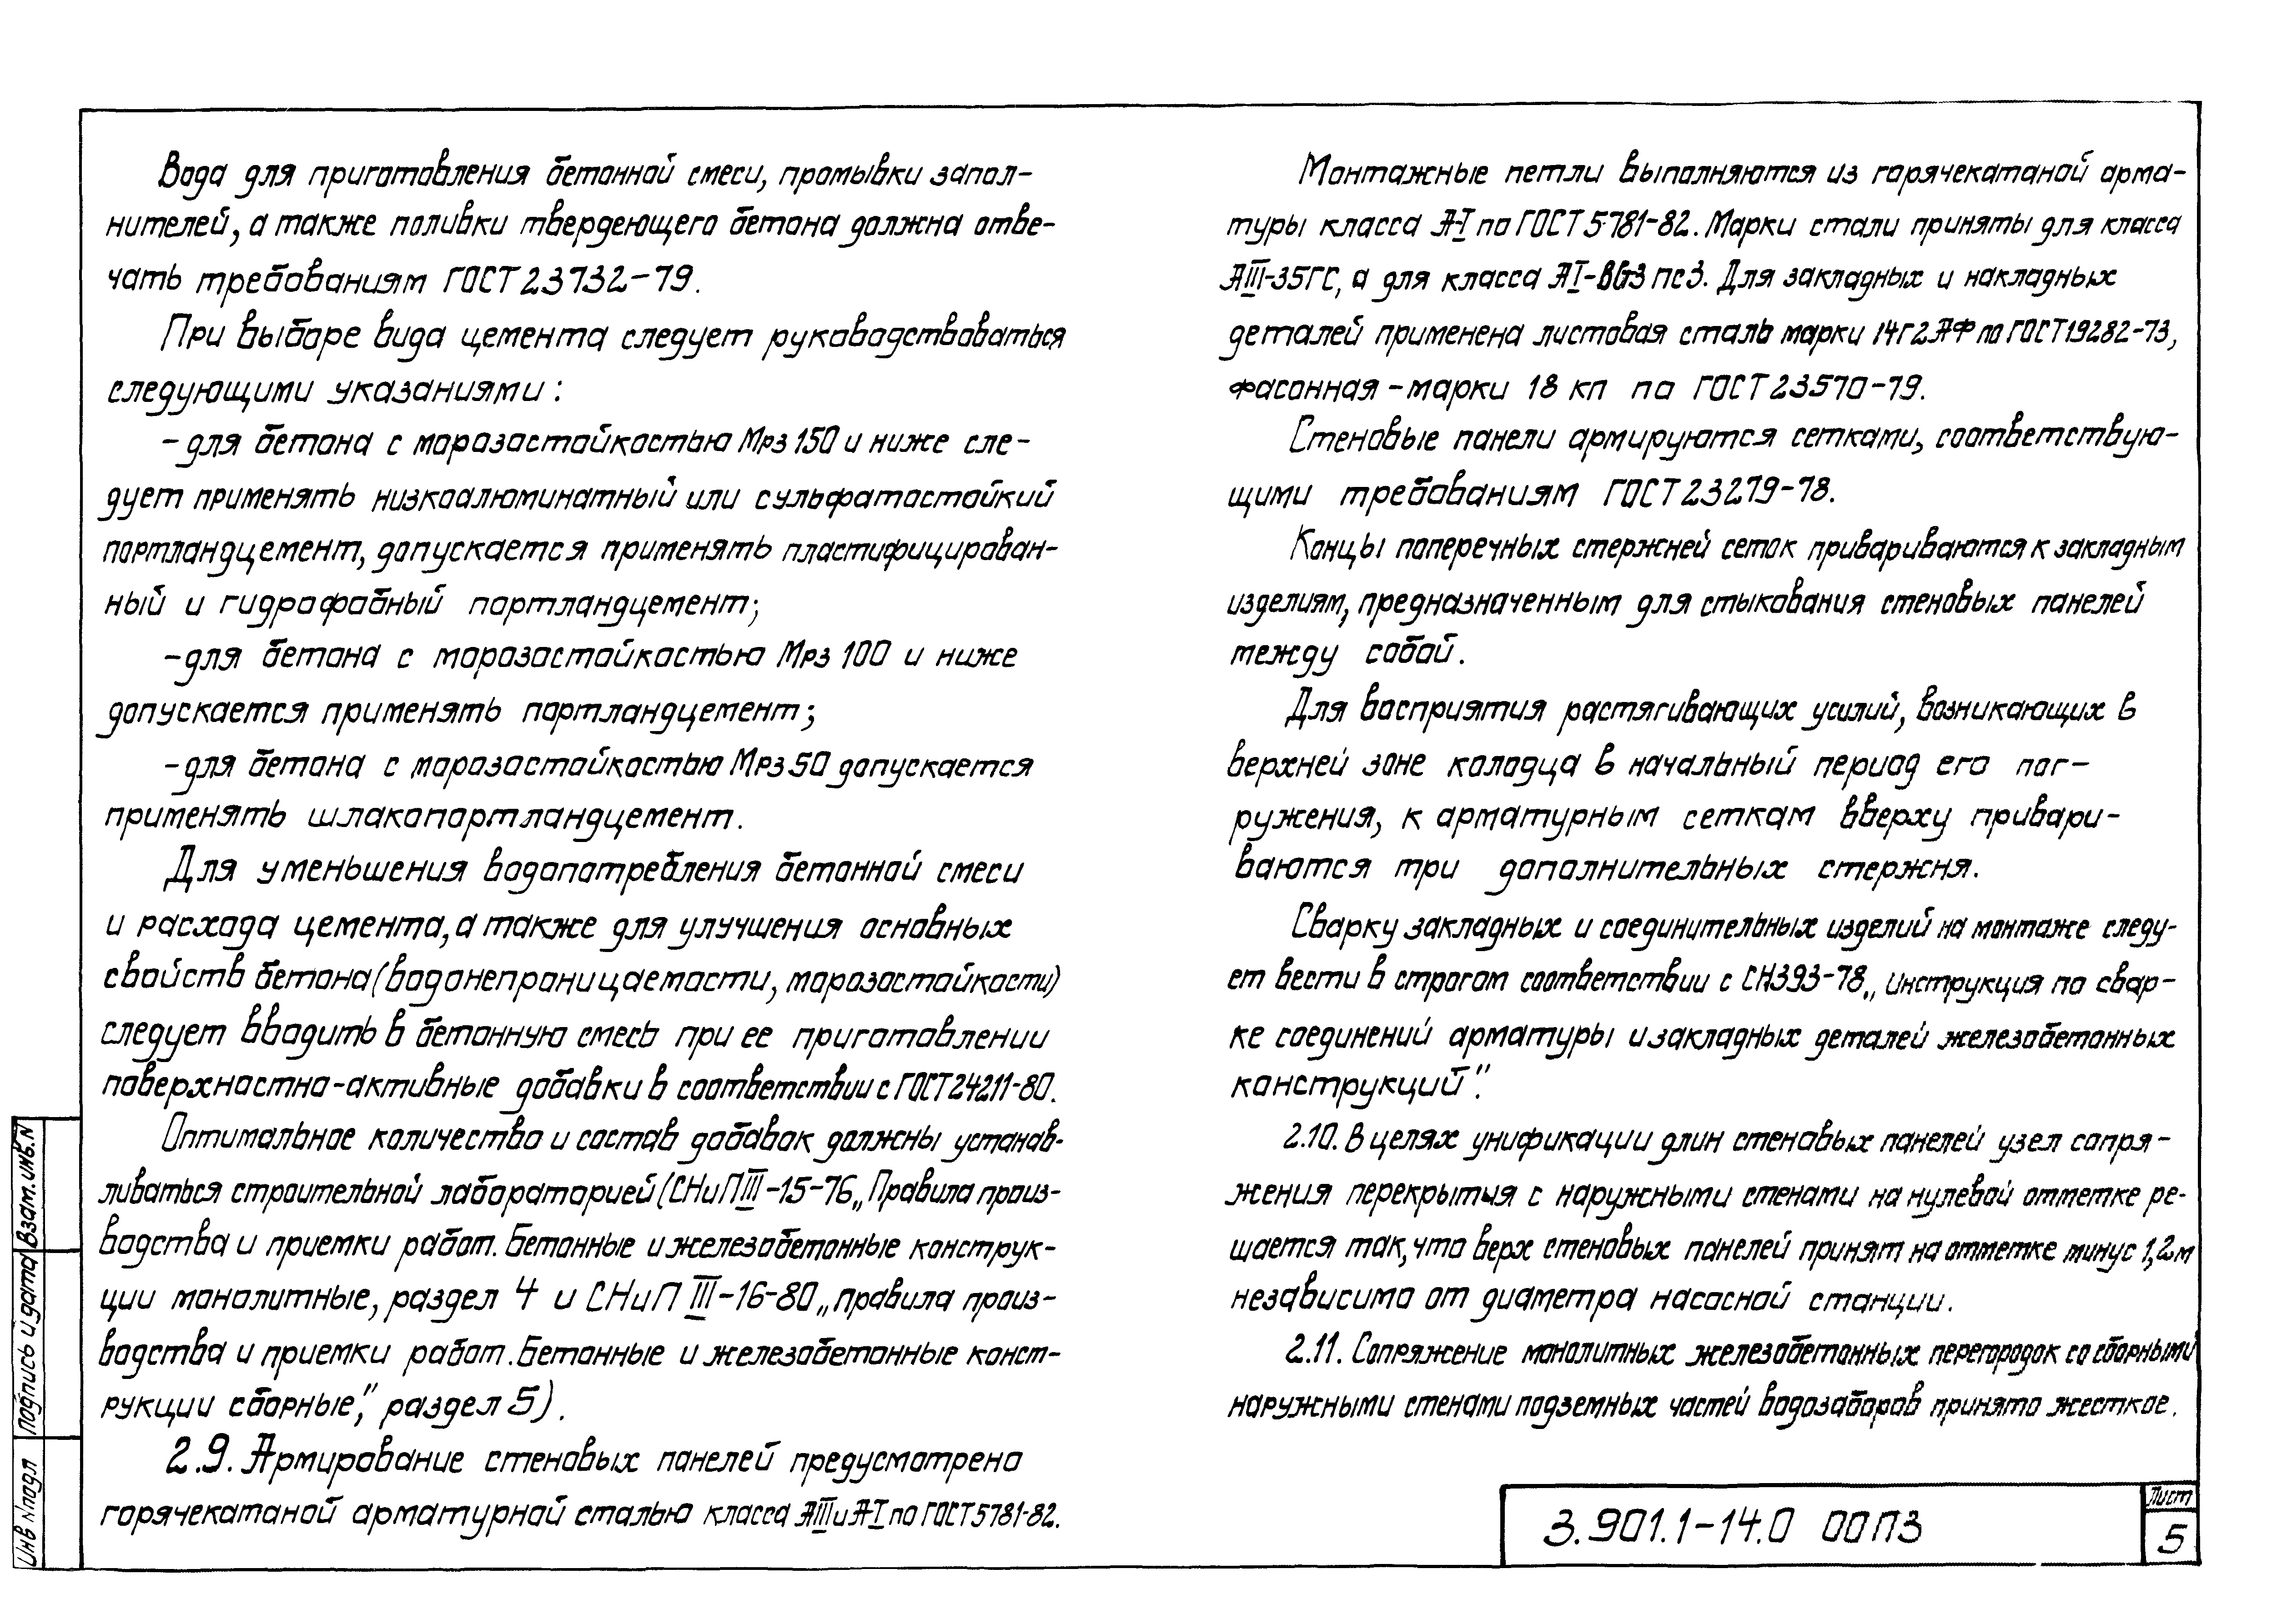 Вода для приготовления бетонной смеси, промывки запол-
нителей, а также поливки твердеющего бетона должна отве-
чать требованиям ГОСТ 23732-79.
При выборе вида цемента следует руководствоваться
следующими указаниями:
- для бетона с морозостойкостью Мрз 150 и ниже сле-
дует применять низкоалюминатный или сульфатостойкий
портландцемент, допускается применять пластифицирован-
ный и гидрофобный портландцемент;
- для бетона с морозостойкостью Мрз 100 и ниже
допускается применять портландцемент;
- для бетона с морозостойкостью Мрз 50 допускается
применять шлакопортландцемент.
Для уменьшения водопотребления бетонной смеси
и расхода цемента, а также для улучшения основных
свойств бетона (водонепроницаемости, морозостойкости)
следует вводить в бетонную смесь при ее приготовлении
поверхностно-активные добавки в соответствии с ГОСТ 24211-80.
Оптимальное количество и состав добавок должны устанав-
ливаться строительной лабораторией (СНиП III-15-76 „Правила произ-
водства и приемки работ. Бетонные и железобетонные конструк-
ции монолитные, раздел 4 и СНиП III-16-80 „Правила произ-
водства и приемки работ. Бетонные и железобетонные конст-
рукции сборные", раздел 5).
2.9. Армирование стеновых панелей предусмотрено
горячекатаной арматурной сталью класса АIII и А-I по ГОСТ 5781-82.
Монтажные петли выполняются из горячекатаной арма-
туры класса А-I по ГОСТ 5781-82. Марки стали приняты для класса
АIII-35ГС, а для класса АI-ВСт3 пс3. Для закладных и накладных
деталей применена листовая сталь марки 14Г2АФ по ГОСТ 19282-73,
фасонная - марки 18 кп по ГОСТ 23570-79.
Стеновые панели армируются сетками, соответствую-
щими требованиям ГОСТ 23279-78.
Концы поперечных стержней сеток привариваются к закладным
изделиям, предназначенным для стыкования стеновых панелей
между собой.
Для восприятия растягивающих усилий, возникающих в
верхней зоне колодца в начальный период его пог-
ружения, к арматурным сеткам вверху привари-
ваются три дополнительных стержня.
Сварку закладных и соединительных изделий на монтаже следу-
ет вести в строгом соответствии с СН393-78 „Инструкция по свар-
ке соединений арматуры и закладных деталей железобетонных
конструкций".
2.10. В целях унификации длин стеновых панелей узел сопря-
жения перекрытия с наружными стенами на нулевой отметке ре-
шается так, что верх стеновых панелей принят на отметке минус 1,2м
независимо от диаметра насосной станции.
2.11. Сопряжение монолитных железобетонных перегородок со сборными
наружными стенами подземных частей водозаборов принято жесткое.
3.901.1-14.0 00ПЗ
Лист
5
Взам. инв. N
Подпись и дата
Инв N подл